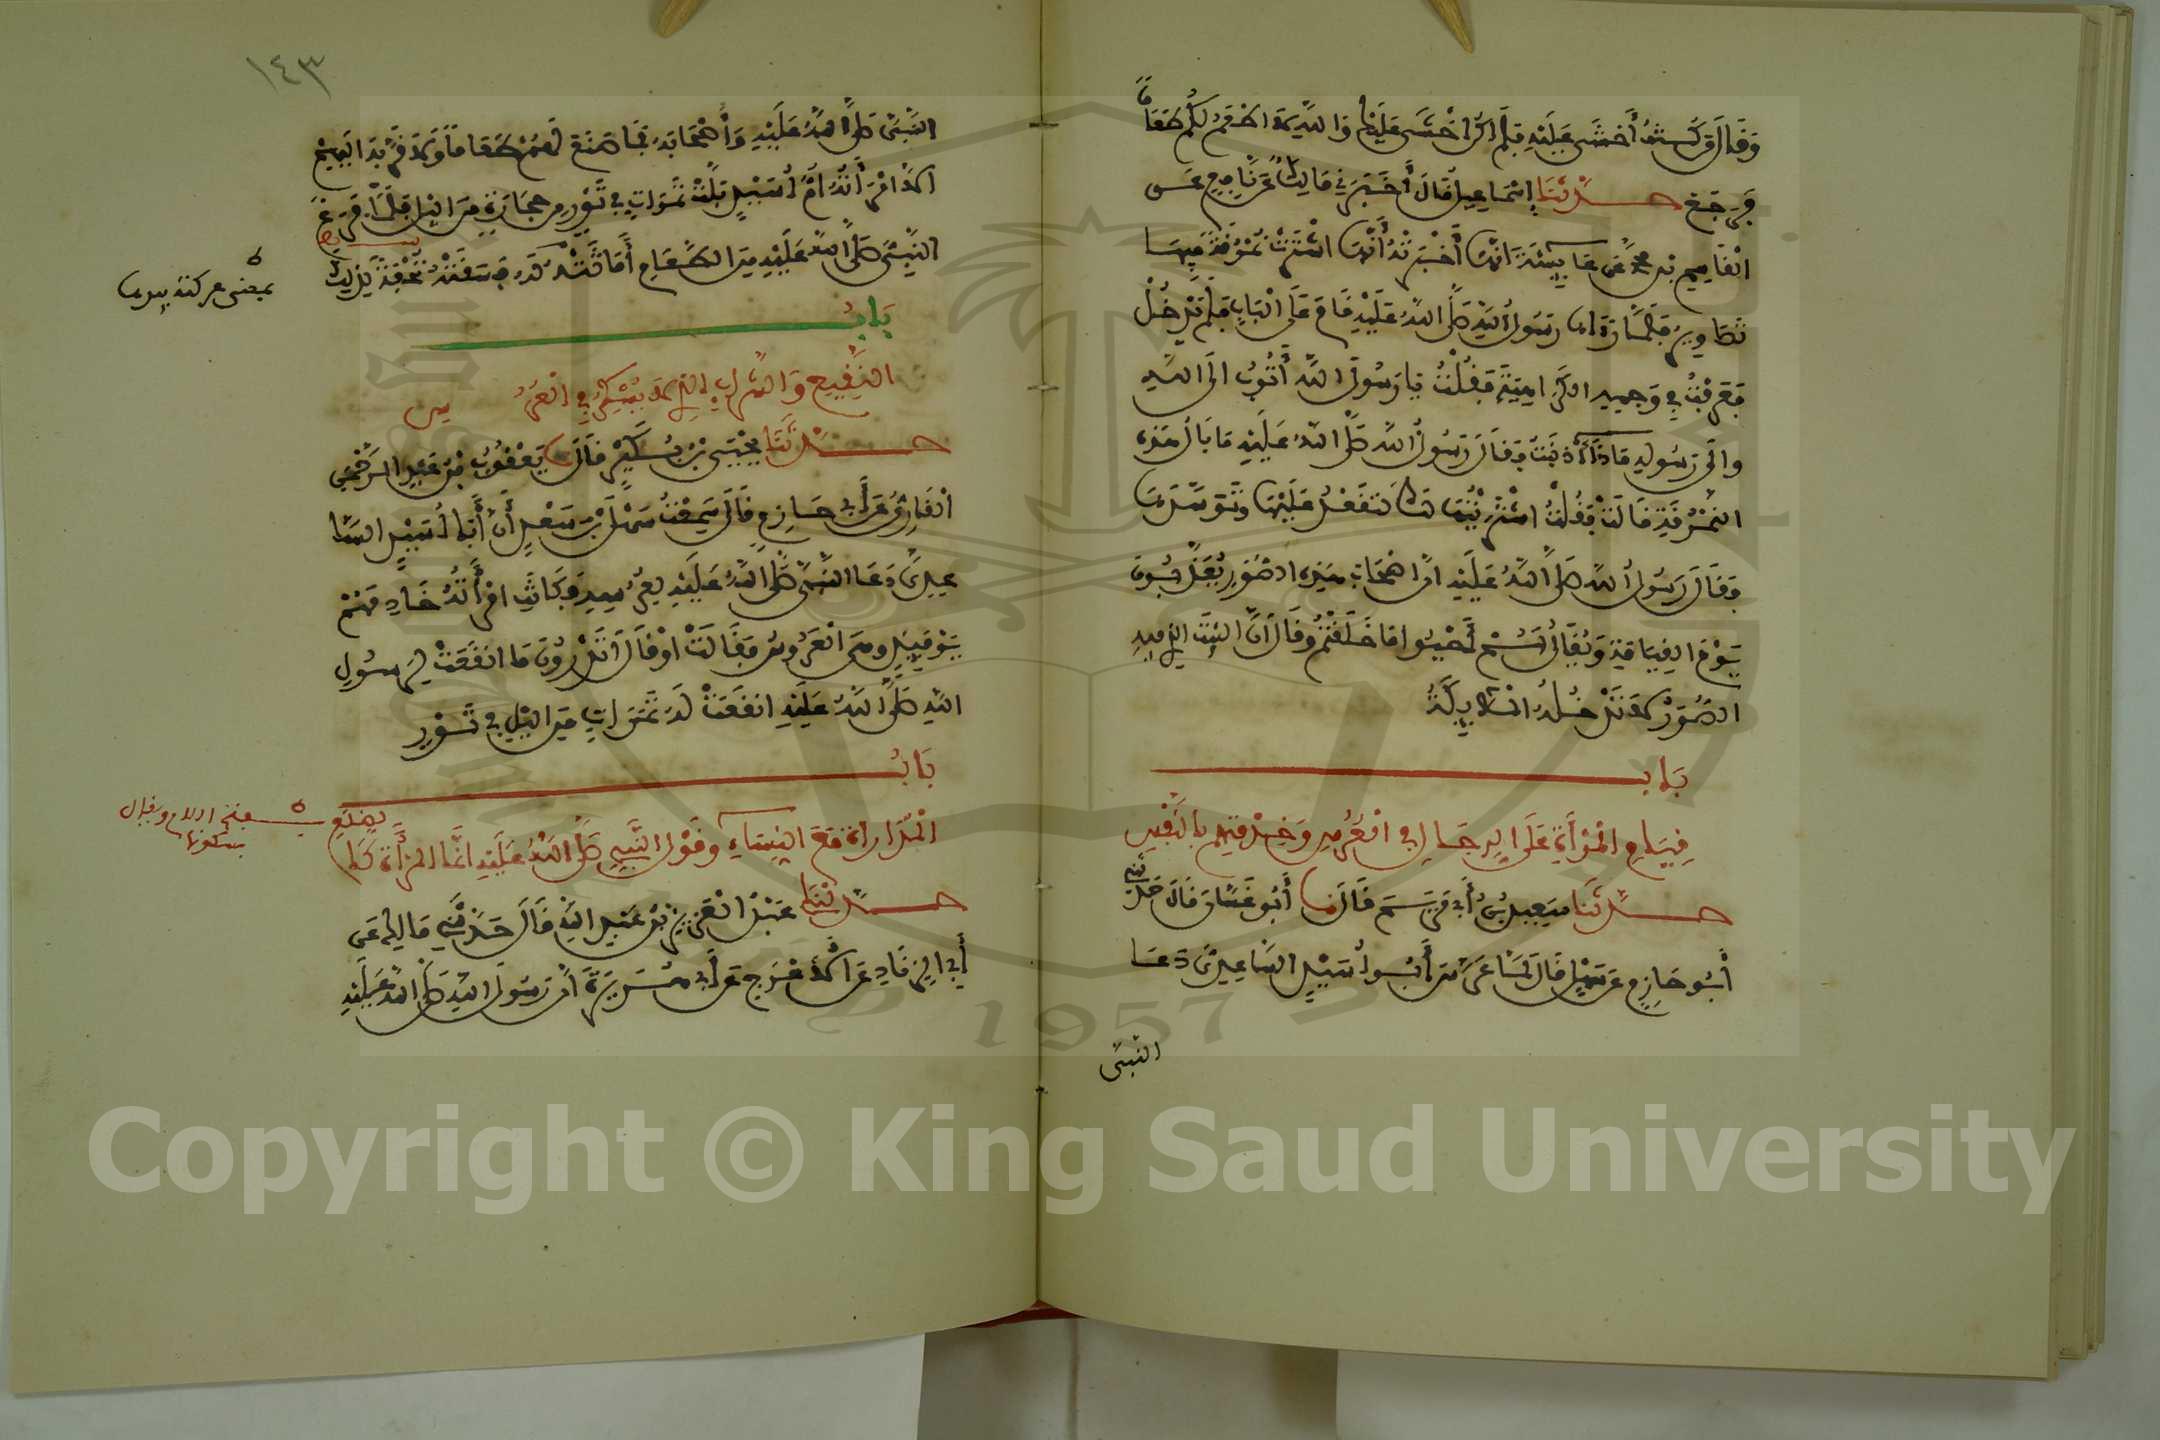 وَقَالَ مَن كُنتُ أَخْشَى عَلَيْهِ فَلَمْ أَكُنْ أَخْشَى عَلَيْكَ وَاللَّهِ لَا أَطْعَمُ لَكُمْ طَعَامًا
فَرَجَعَ حَدَّثَنَا إِسْمَاعِيلُ قَالَ أَخْبَرَنِي مَالِكٌ عَن نَّافِعٍ عَنِ
الْقَاسِمِ بْنِ مُحَمَّدٍ عَنْ عَائِشَةَ أَنَّهَا أَخْبَرَتْهُ أَنَّهَا اشْتَرَتْ نُمْرُقَةً فِيهَا
تَصَاوِيرُ فَلَمَّا رَآهَا رَسُولُ اللَّهِ صَلَّى اللَّهُ عَلَيْهِ قَامَ عَلَى الْبَابِ فَلَمْ يَدْخُلْ
فَعَرَفْتُ فِي وَجْهِهِ الْكَرَاهِيَةَ فَقُلْتُ يَا رَسُولَ اللَّهِ أَتُوبُ إِلَى اللَّهِ
وَإِلَى رَسُولِهِ مَاذَا أَذْنَبْتُ فَقَالَ رَسُولُ اللَّهِ صَلَّى اللَّهُ عَلَيْهِ مَا بَالُ هَذِهِ
النُّمْرُقَةِ قَالَتْ فَقُلْتُ اشْتَرَيْتُهَا لَكَ لِتَقْعُدَ عَلَيْهَا وَتَوَسَّدَهَا
فَقَالَ رَسُولُ اللَّهِ صَلَّى اللَّهُ عَلَيْهِ إِنَّ أَصْحَابَ هَذِهِ الصُّوَرِ يُعَذَّبُونَ
يَوْمَ الْقِيَامَةِ وَيُقَالُ لَهُمْ أَحْيُوا مَا خَلَقْتُمْ وَقَالَ إِنَّ الْبَيْتَ الَّذِي فِيهِ
الصُّوَرُ لَا تَدْخُلُهُ الْمَلَائِكَةُ
بَابُ
قِيَامِ الْمَرْأَةِ عَلَى الرِّجَالِ فِي الْعُرْسِ وَخِدْمَتِهِمْ بِالنَّفْسِ
حَدَّثَنَا سَعِيدُ بْنُ أَبِي مَرْيَمَ قَالَ نَا أَبُو غَسَّانَ قَالَ حَدَّثَنِي
أَبُو حَازِمٍ عَنْ سَهْلٍ قَالَ لَمَّا عَرَّسَ أَبُو أُسَيْدٍ السَّاعِدِيُّ دَعَا
النَّبِيَّ
١٤٣
النَّبِيَّ صَلَّى اللَّهُ عَلَيْهِ وَأَصْحَابَهُ فَمَا صَنَعَ لَهُمْ طَعَامًا وَلَا قَرَّبَهُ إِلَيْهِمْ
إِلَّا امْرَأَتُهُ أُمُّ أُسَيْدٍ بَلَّتْ تَمَرَاتٍ فِي تَوْرٍ مِنْ حِجَارَةٍ مِنَ اللَّيْلِ فَلَمَّا فَرَغَ
النَّبِيُّ صَلَّى اللَّهُ عَلَيْهِ مِنَ الطَّعَامِ أَمَاثَتْهُ لَهُ فَسَقَتْهُ تُحْفَةً بِذَلِكَ
بمعنى عركته بيدها
بَابُ
النَّقِيعِ وَالشَّرَابِ الَّذِي لَا يُسْكِرُ فِي الْعُرْسِ
حَدَّثَنَا يَحْيَى بْنُ بُكَيْرٍ قَالَ نَا يَعْقُوبُ بْنُ عَبْدِ الرَّحْمَنِ
الْقَارِيُّ عَنْ أَبِي حَازِمٍ قَالَ سَمِعْتُ سَهْلَ بْنَ سَعْدٍ أَنَّ أَبَا أُسَيْدٍ السَّا
عِدِيَّ دَعَا النَّبِيَّ صَلَّى اللَّهُ عَلَيْهِ لِعُرْسِهِ فَكَانَتِ امْرَأَتُهُ خَادِمَهُمْ
يَوْمَئِذٍ وَهِيَ الْعَرُوسُ فَقَالَتْ أَوْ قَالَ أَتَدْرُونَ مَا أَنْقَعَتْ لِرَسُولِ
اللَّهِ صَلَّى اللَّهُ عَلَيْهِ أَنْقَعَتْ لَهُ تَمَرَاتٍ مِنَ اللَّيْلِ فِي تَوْرٍ
بَابُ
الْمُدَارَاةِ مَعَ النِّسَاءِ وَقَوْلِ النَّبِيِّ صَلَّى اللَّهُ عَلَيْهِ إِنَّمَا الْمَرْأَةُ كَالضِّلَعِ
بفتح اللام ويقال
بسكونها
حَدَّثَنَا عَبْدُ الْعَزِيزِ بْنُ عَبْدِ اللَّهِ قَالَ حَدَّثَنِي مَالِكٌ عَنْ
أَبِي الزِّنَادِ عَنِ الْأَعْرَجِ عَنْ أَبِي هُرَيْرَةَ أَنَّ رَسُولَ اللَّهِ صَلَّى اللَّهُ عَلَيْهِ
1957
Copyright © King Saud University